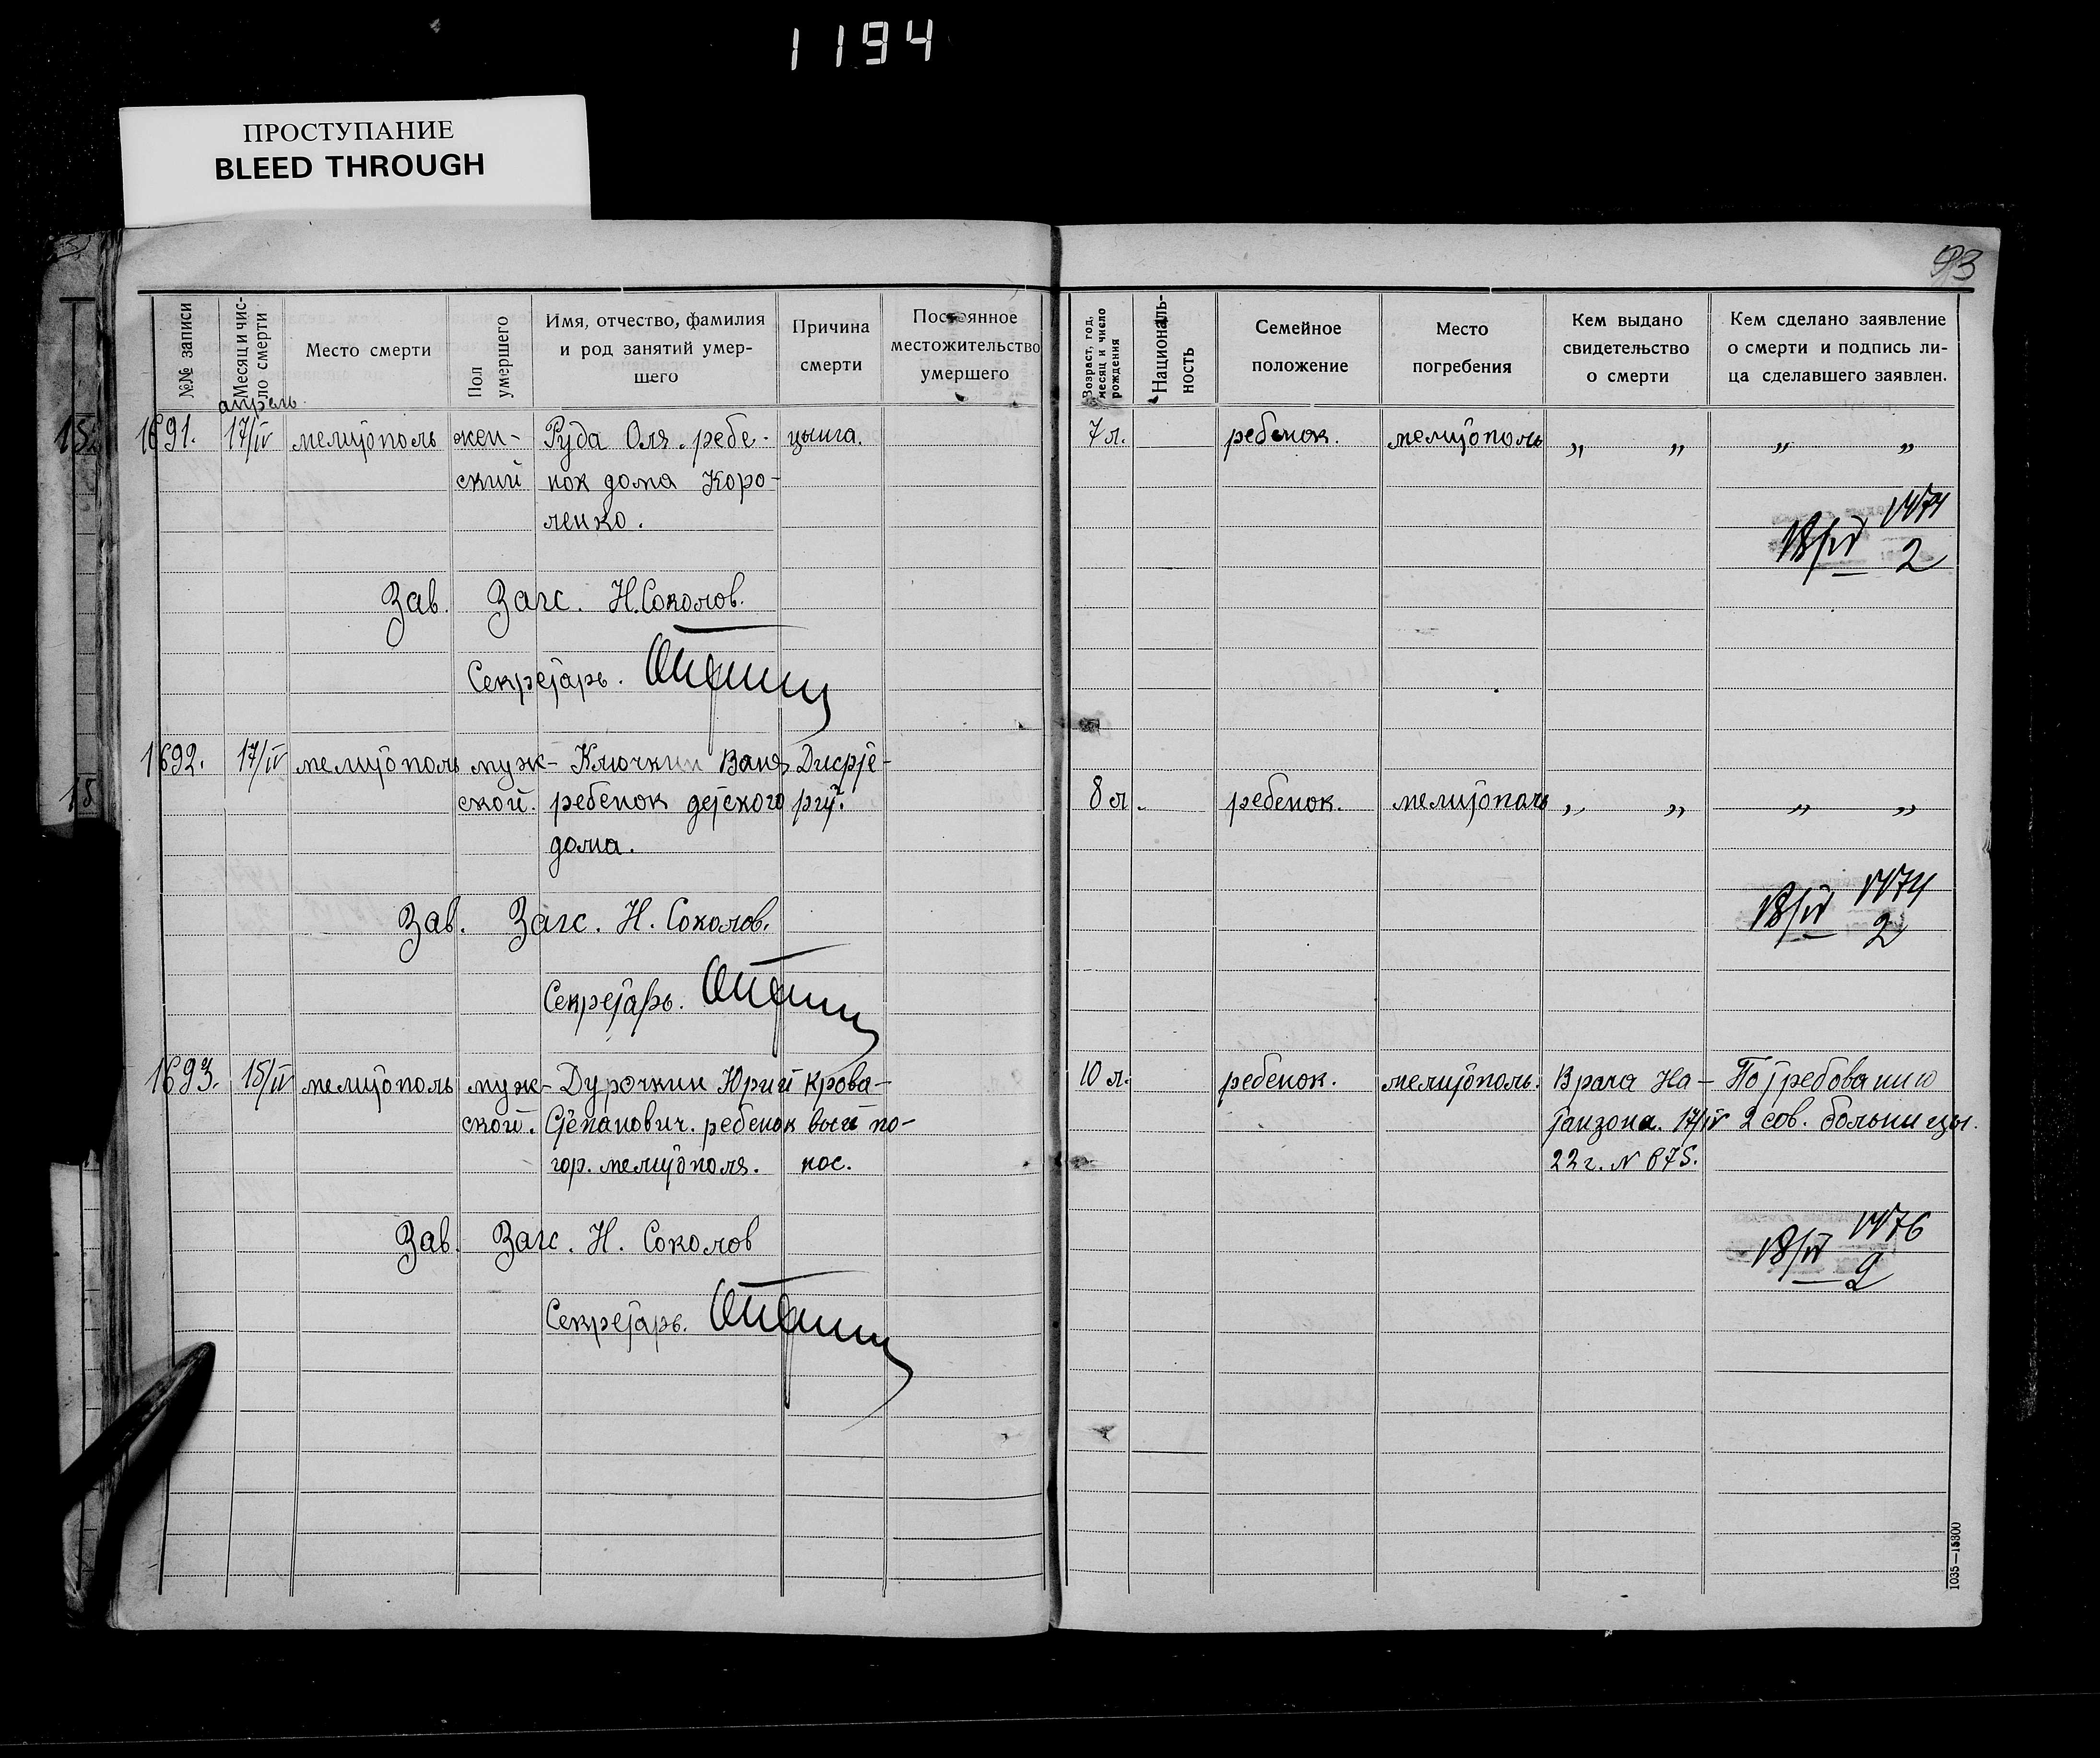 1194
ПРОСТУПАНИЕ
BLEED THROUGH
93
№№ записи
Месяц и чис-
ло смерти
Место смерти
Пол
умершего
Имя, отчество, фамилия
и род занятий умер-
шего
Причина
смерти
Постоянное
местожительство
умершего
Возраст, год,
месяц и число
рождения
Националь-
ность
Семейное
положение
Место
погребения
Кем выдано
свидетельство
о смерти
Кем сделано заявление
о смерти и подпись ли-
ца сделавшего заявлен.
апрель
1691. 17/IV мелитополь жен- Руда Оля. ребе- цынга. 7 л. ребенок. мелитополь „ „ „ „
ский нок дома Коро-
ленко.
18/IV 2
Зав. Загс. Н. Соколов.
Секретарь.
1692. 17/IV мелитополь муж- Ключкин Ваня Дисрте-
ской. ребенок детского рит. 8 л. ребенок. мелитополь „ „ „ „
дома.
18/IV 2
Зав. Загс. Н. Соколов.
Секретарь.
1693. 15/IV мелитополь муж- Дурочкин Юрий Крова- 10 л. ребенок. мелитополь. Врача На- По требованию
ской. Степанович. ребенок вый по- танзона. 17/IV 2 сов. больницы.
гор. мелитополя. нос. 22 г. N 675.
18/IV 2
Зав. Загс. Н. Соколов
Секретарь.
1035—15300